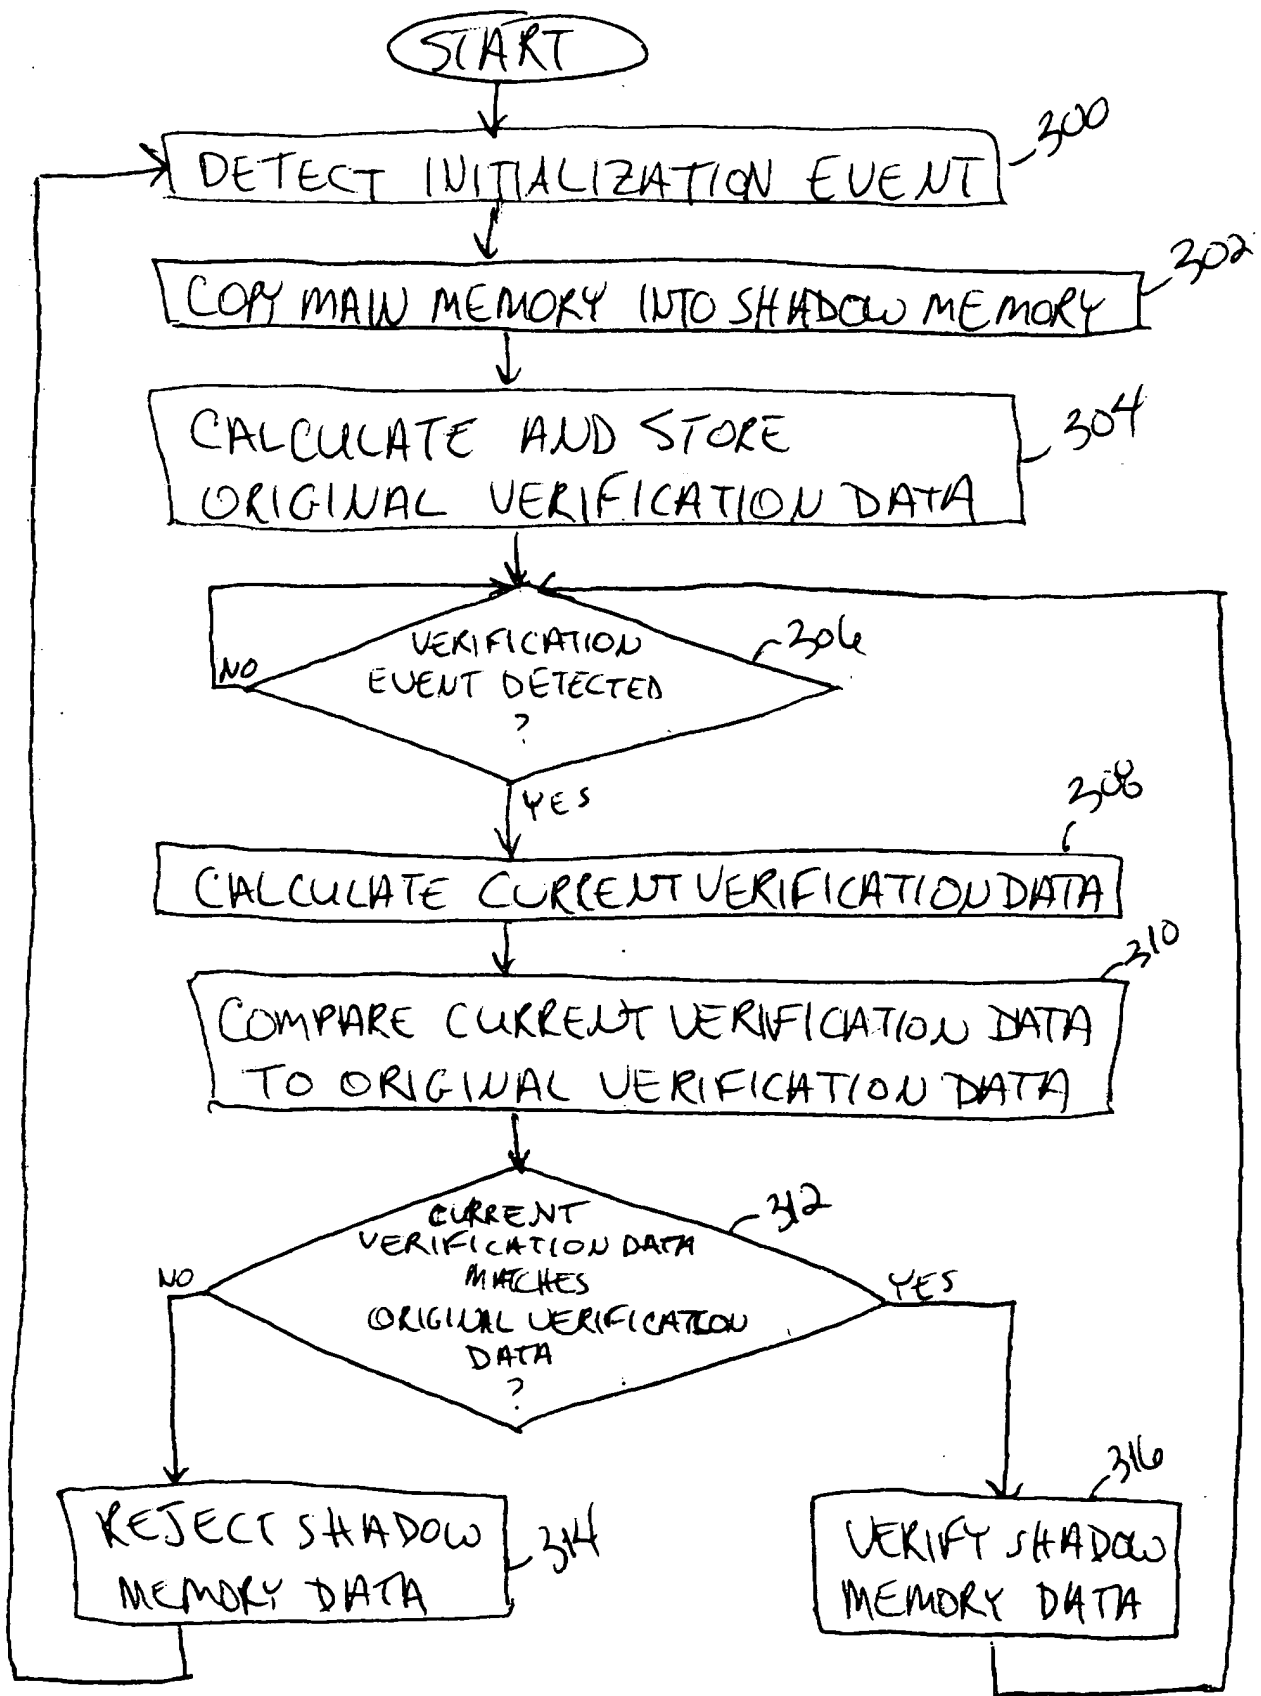 START
DETECT INITIALIZATION EVENT
300
COPY MAIN MEMORY INTO SHADOW MEMORY
302
CALCULATE AND STORE
ORIGINAL VERIFICATION DATA
304
VERIFICATION
EVENT DETECTED
?
306
NO
YES
308
CALCULATE CURRENT VERIFICATION DATA
310
COMPARE CURRENT VERIFICATION DATA
TO ORIGINAL VERIFICATION DATA
CURRENT
VERIFICATION DATA
MATCHES
ORIGINAL VERIFICATION
DATA
?
312
NO
YES
REJECT SHADOW
MEMORY DATA
314
316
VERIFY SHADOW
MEMORY DATA